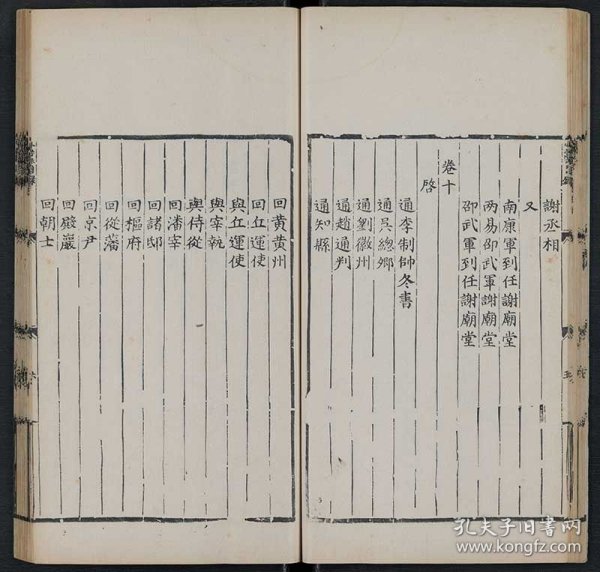 謝丞相
又
南康軍到任謝廟堂
两易邵武軍謝廟堂
邵武軍到任謝廟堂
卷十
啓
通李制帥冬書
通吳總鄉
通劉徽州
通趙通判
通知縣
回黄黄州
回丘運使
與丘運使
與宰執
與侍從
回潘宰
回諸邸
回樞府
回從藩
回京尹
回殿巖
回朝士
孔夫子旧书网
www.kongfz.com